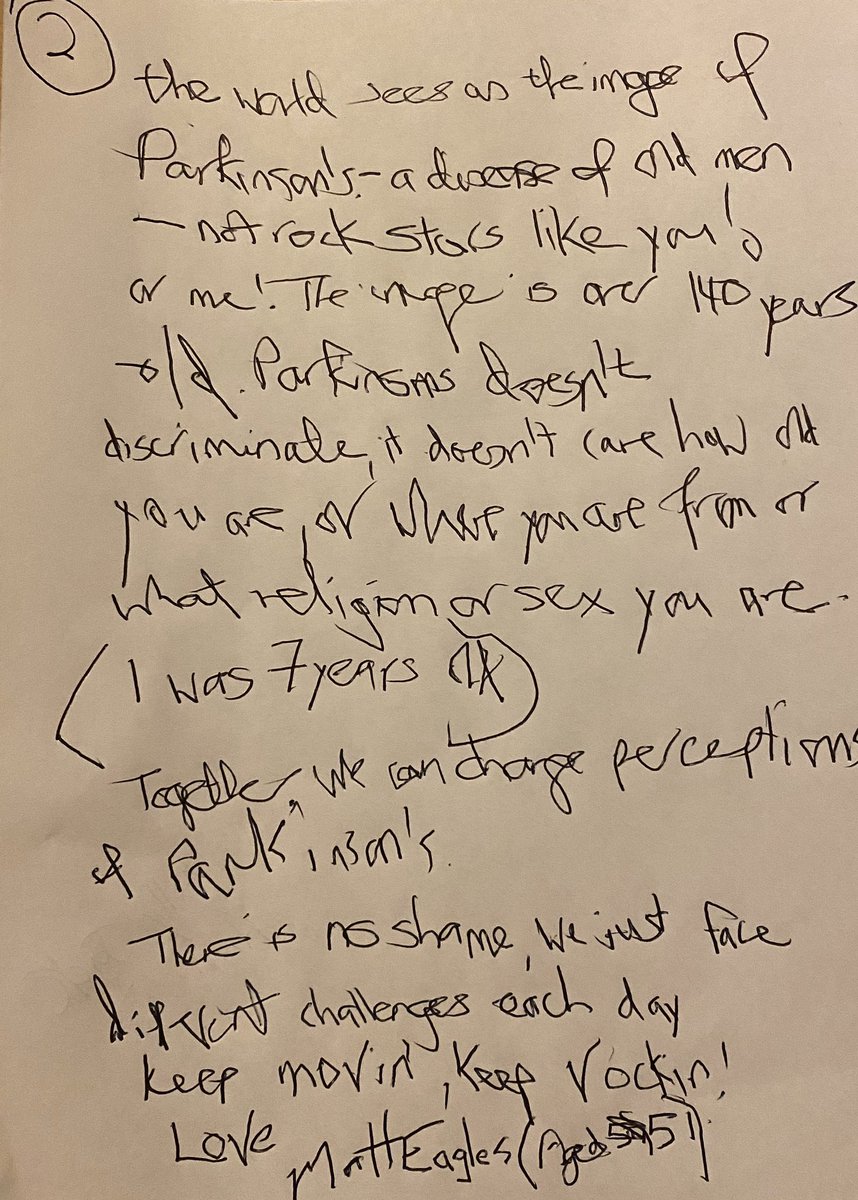 2
the world sees as the image of
Parkinson's - a disease of old men
- not rock stars like you!
or me! The image is over 140 years
old. Parkinsons doesn't
discriminate, it doesn't care how old
you are, or where you are from or
what religion or sex you are.
(I was 7 years old)
Together, we can change perceptions
of Parkinson's.
There is no shame, we just face
different challenges each day
keep movin', keep rockin!
Love Matt Eagles (Aged 51)